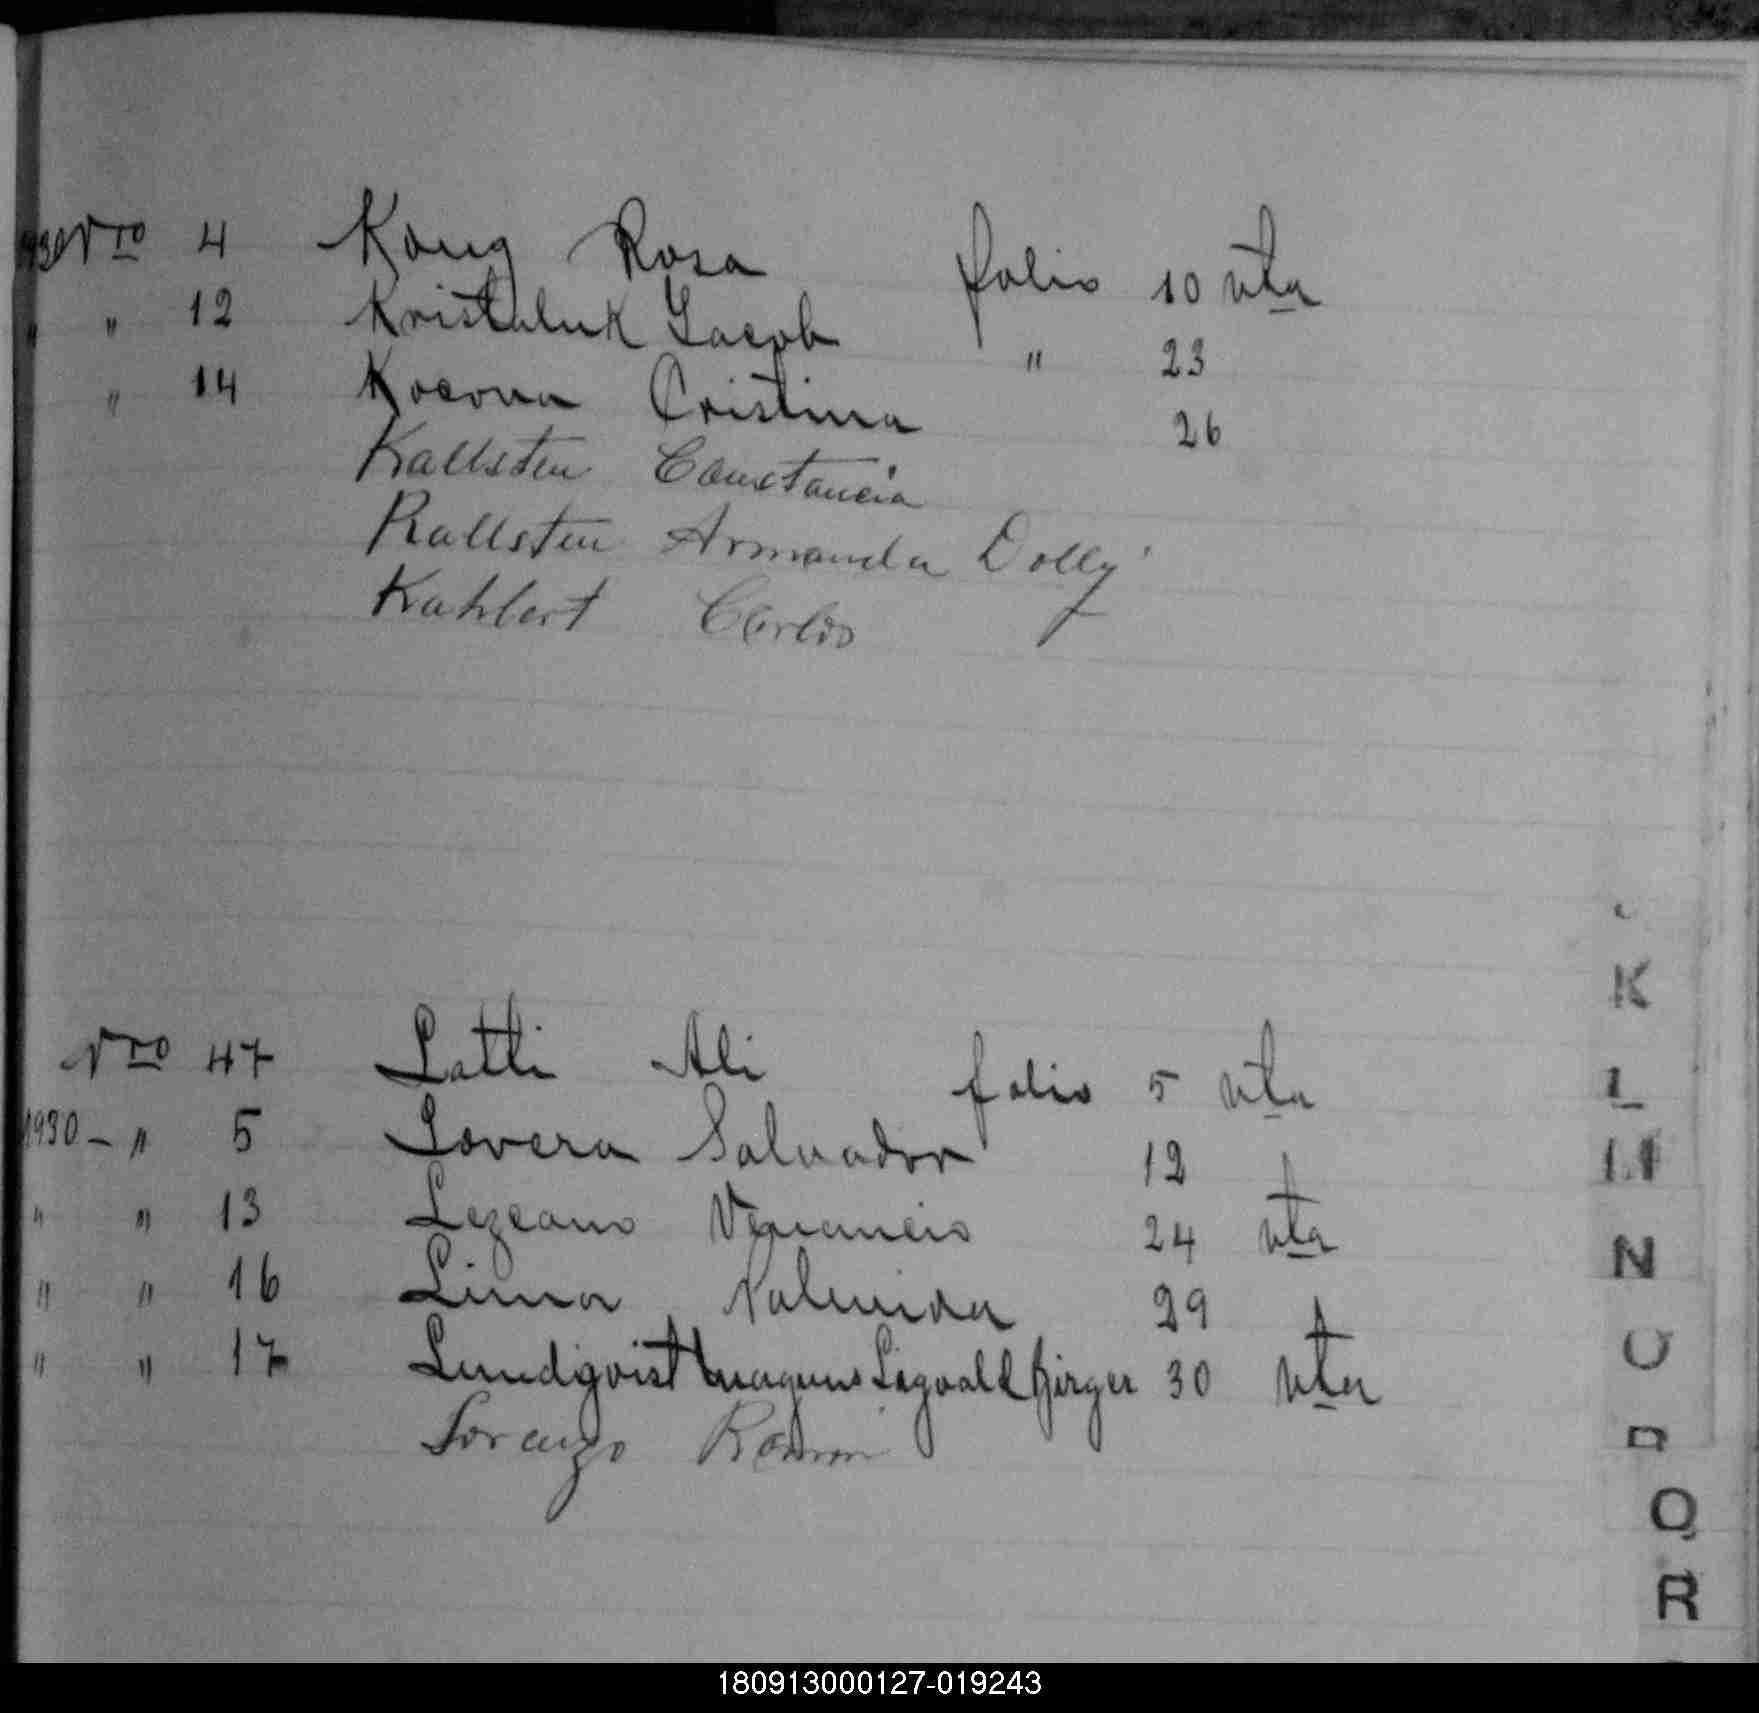 1930 Nro 4 Kong Rosa folio 10 vta
" " 12 Kristaluk Jacob " 23
" 14 Kocova Cristina 26
Kallsten Constancia
Kallsten Armanda Dolly
Kahlert Carlos
Nro 47 Latli Ali folio 5 vta
1930 - " 5 Lovera Salvador 12
" " 13 Lezcano Venancio 24 vta
" " 16 Lima 29
" " 17 Lundqvist Magnus Sigvald Birger 30 vta
Lorenzo Ramon
K
L
M
N
O
P
Q
R
180913000127-019243